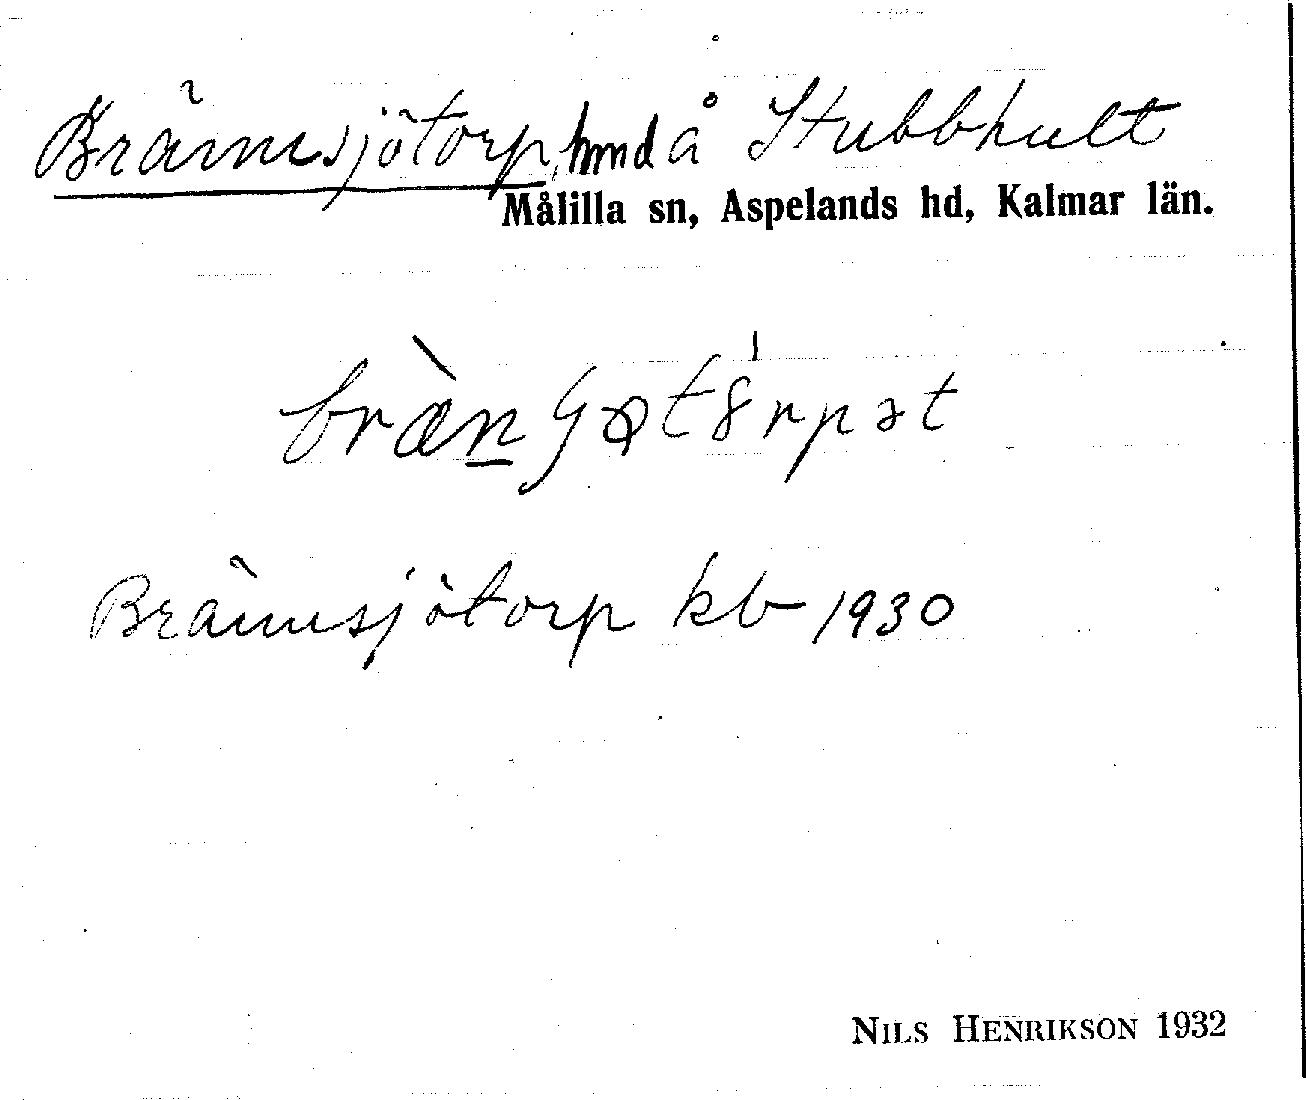 Brämsjötorp, hmnd å Stubbhult
Målilla sn, Aspelands hd, Kalmar län.
Brämsjötorp kb 1930
NILS HENRIKSON 1932